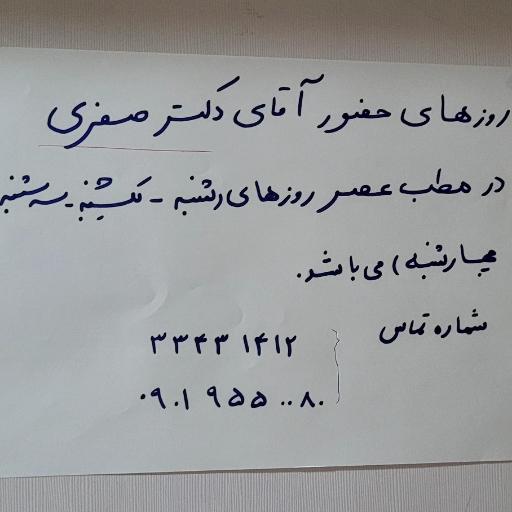 روزهای حضور آقای دکتر صفری
در مطب عصر روزهای (شنبه - یکشنبه - سه شنبه
چهارشنبه) می باشد.
شماره تماس
۳۳۴۳ ۱۴۱۲
۰۹۰۱ ۹۵۵ ۰۰۸۰